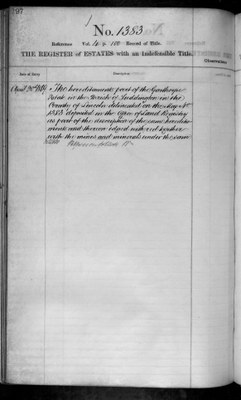 97
No. 1353
Reference Vol. 4 p. 180 Record of Title.
THE REGISTER of ESTATES with an Indefeasible Title.
Date of Entry
Description
Observations
The hereditaments part of the
Estate in the Parish of Luddington in the
County of Lincoln delineated on the Map No
1353 deposited in the Office of Land Registry
as part of the description of the same heredita-
ments and thereon edged with red together
with the mines and minerals under the same